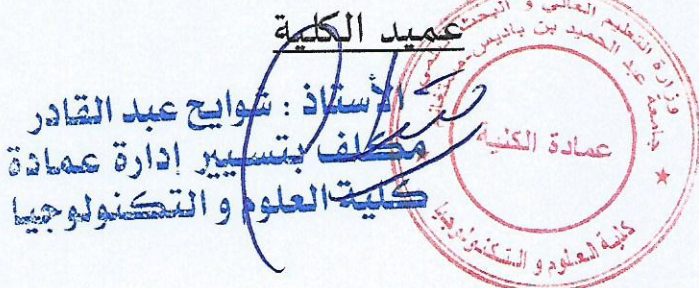 عميد الكلية
الأستاذ : شوايح عبد القادر
مكلف بتسيير إدارة عمادة
كلية العلوم و التكنولوجيا
وزارة التعليم العالي و البحث
جامعة عبد الحميد بن باديس
عمادة الكلية
كلية العلوم و التكنولوجيا